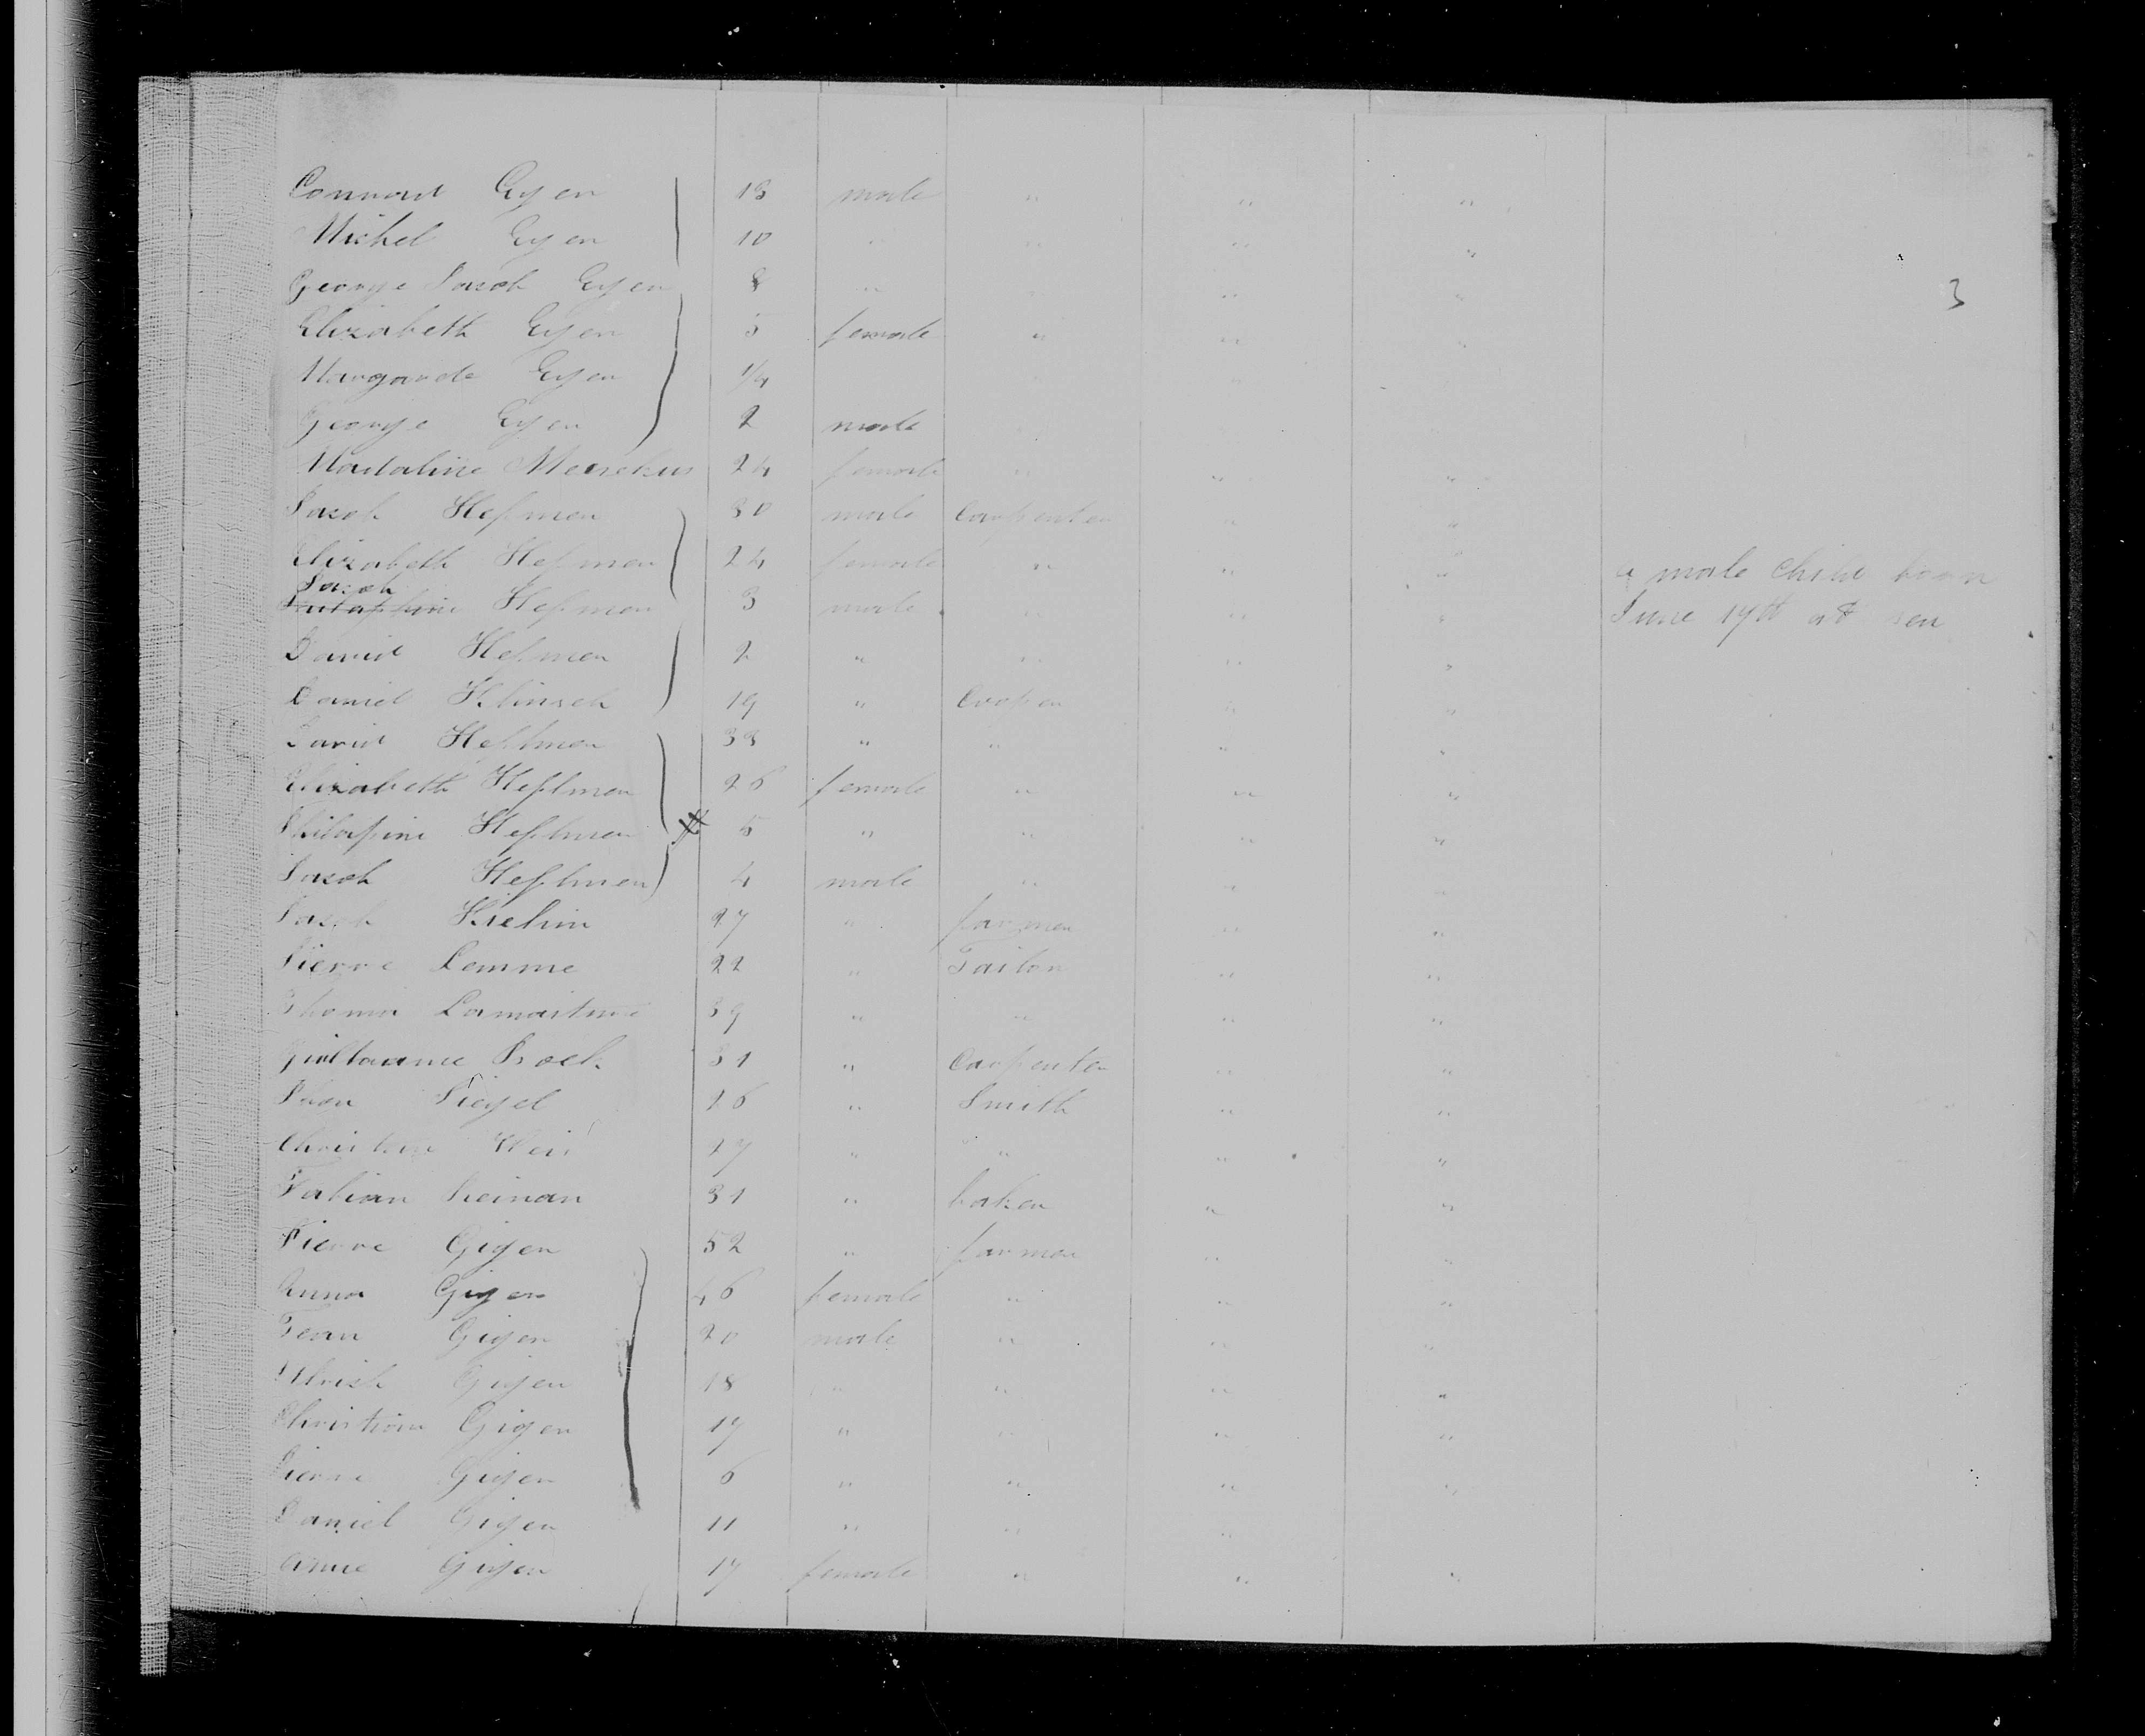 Connard Eyen 13 male " " "
Michel Eyen 10 " " " "
3
George Jacob Eyen 8 " " " "
Elizabeth Eyen 5 female " " "
Margarde Eyen 1/4 "
George Eyen 2 male
Madaline 24 female " " "
Jacob Hefsmen 30 male Carpenter " "
Elizabeth Hefsmen 24 female " " " a male Child born
Jacob
Hefsmen 3 male " " " June 17th at sea
David Hefsmen 2 " " " "
Daniel Klinsch 19 " Cooper " "
David Heflmen 33 " " " "
Elizabeth Heflmen 26 female " " "
Philapine Heflmen 5 " " " "
Jacob Heflmen 4 male " " "
Jacob Krehin 27 " farmer " "
Pierre Lemme 22 " Tailor " "
Thoma 39 " " " "
Guillaume Bock 31 " Carpenter " "
Siegel 26 " Smith " "
Christian 27 " " " "
Fabian Reinan 31 " baker " "
Pierre Gigen 52 " farmer " "
Anna Gigen 46 female " " "
Jean Gigen 20 male " " "
Ulrich Gigen 18 " " " "
Christian Gigen 17 " " " "
Pierre Gigen 6 " " " "
Daniel Gigen 11 " " " "
Anne Gigen 17 female " " "